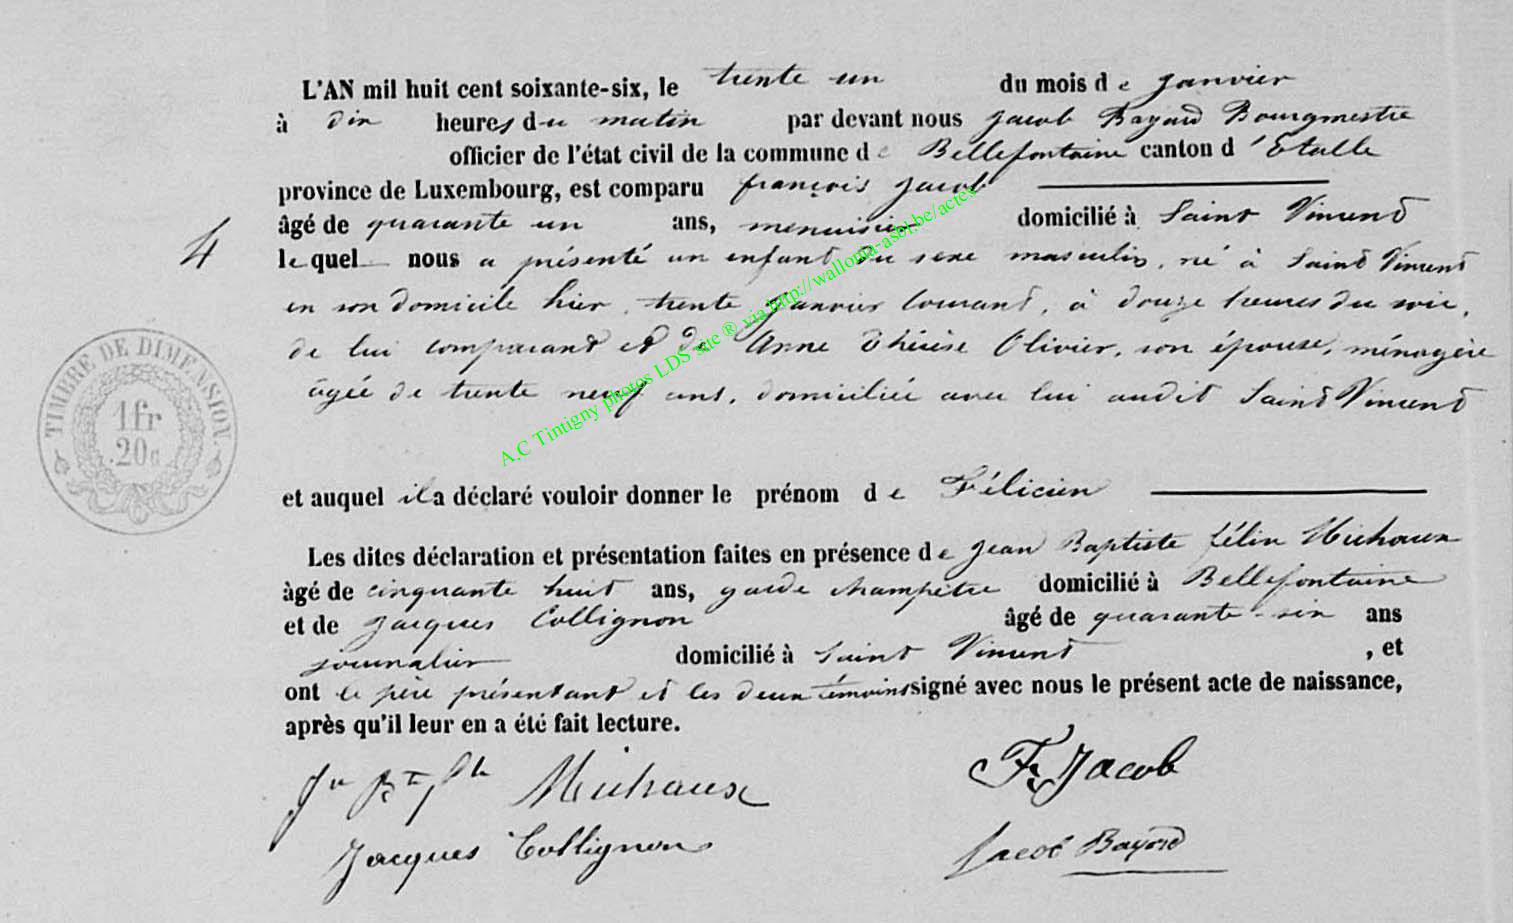 L'AN mil huit cent soixante-six, le trente un du mois de janvier
à dix heures du matin par devant nous Jacob Bayard Bourgmestre
officier de l'état civil de la commune de Bellefontaine canton d'Etalle
province de Luxembourg, est comparu françois Jacob
âgé de quarante un ans, menuisier domicilié à Saint Vincent
4
lequel nous a présenté un enfant du sexe masculin, né à Saint Vincent
en son domicile hier, trente Janvier Courant, à douze heures du soir,
de lui comparant et de Anne Thérèse Olivier, son épouse, ménagère
âgée de trente neuf ans, domiciliée avec lui audit Saint Vincent
TIMBRE DE DIMENSION.
1 fr
.20c
et auquel il a déclaré vouloir donner le prénom de Félicien
Les dites déclaration et présentation faites en présence de Jean Baptiste Michaux
âgé de cinquante huit ans, garde champêtre domicilié à Bellefontaine
et de Jacques Collignon âgé de quarante-six ans
journalier domicilié à Saint Vincent , et
ont le père présentant et les deux témoins signé avec nous le présent acte de naissance,
après qu'il leur en a été fait lecture.
Michaux F. Jacob
Jacques Collignon Jacob Bayard
A.C Tintigny photos LDS site ® via http://walloma-asbl.be/actes